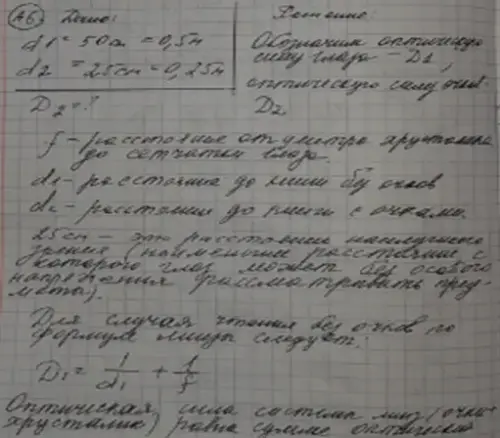 А6 Дано: Решение:
d1 = 50см = 0,5м Обозначим оптическую
d2 = 25см = 0,25м силу глаза - D1,
оптическую силу очков
D2 = ? D2
f - расстояние от центра хрусталика
до сетчатки глаза.
d1 - расстояние до книги без очков
d2 - расстояние до книги с очками.
25см - это расстояние наилучшего
зрения (наименьшее расстояние с
которого глаз может без особого
напряжения рассматривать пред-
меты).
Для случая чтения без очков по
формуле линзы следует:
D1 = 1/d1 + 1/f
Оптическая сила системы линз (очки+
хрусталик) равна сумме оптических